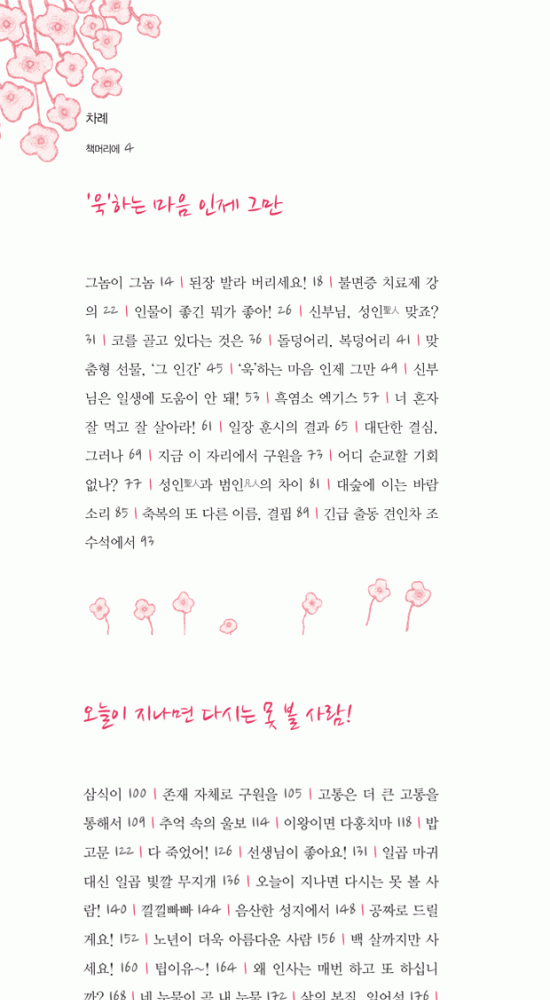 차례
책머리에 4
'욱'하는 마음 인제 그만
그놈이 그놈 14 | 된장 발라 버리세요! 18 | 불면증 치료제 강
의 22 | 인물이 좋긴 뭐가 좋아! 26 | 신부님, 성인聖人 맞죠?
31 | 코를 골고 있다는 것은 36 | 돌덩어리, 복덩어리 41 | 맞
춤형 선물, '그 인간' 45 | '욱'하는 마음 인제 그만 49 | 신부
님은 일생에 도움이 안 돼! 53 | 흑염소 엑기스 57 | 너 혼자
잘 먹고 잘 살아라! 61 | 일장 훈시의 결과 65 | 대단한 결심,
그러나 69 | 지금 이 자리에서 구원을 73 | 어디 순교할 기회
없나? 77 | 성인聖人과 범인凡人의 차이 81 | 대숲에 이는 바람
소리 85 | 축복의 또 다른 이름, 결핍 89 | 긴급 출동 견인차 조
수석에서 93
오늘이 지나면 다시는 못 볼 사람!
삼식이 100 | 존재 자체로 구원을 105 | 고통은 더 큰 고통을
통해서 109 | 추억 속의 울보 114 | 이왕이면 다홍치마 118 | 밥
고문 122 | 다 죽었어! 126 | 선생님이 좋아요! 131 | 일곱 마귀
대신 일곱 빛깔 무지개 136 | 오늘이 지나면 다시는 못 볼 사
람! 140 | 낄낄빠빠 144 | 음산한 성지에서 148 | 공짜로 드릴
게요! 152 | 노년이 더욱 아름다운 사람 156 | 백 살까지만 사
세요! 160 | 팁이유~! 164 | 왜 인사는 매번 하고 또 하십니
까? 168 | 네 눈물이 곧 내 눈물 172 | 삶의 본질, 잃어선 176 |